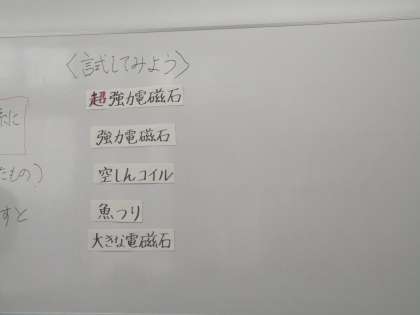 〈試してみよう〉
超強力電磁石
強力電磁石
空しんコイル
魚つり
大きな電磁石
たもの)
すと